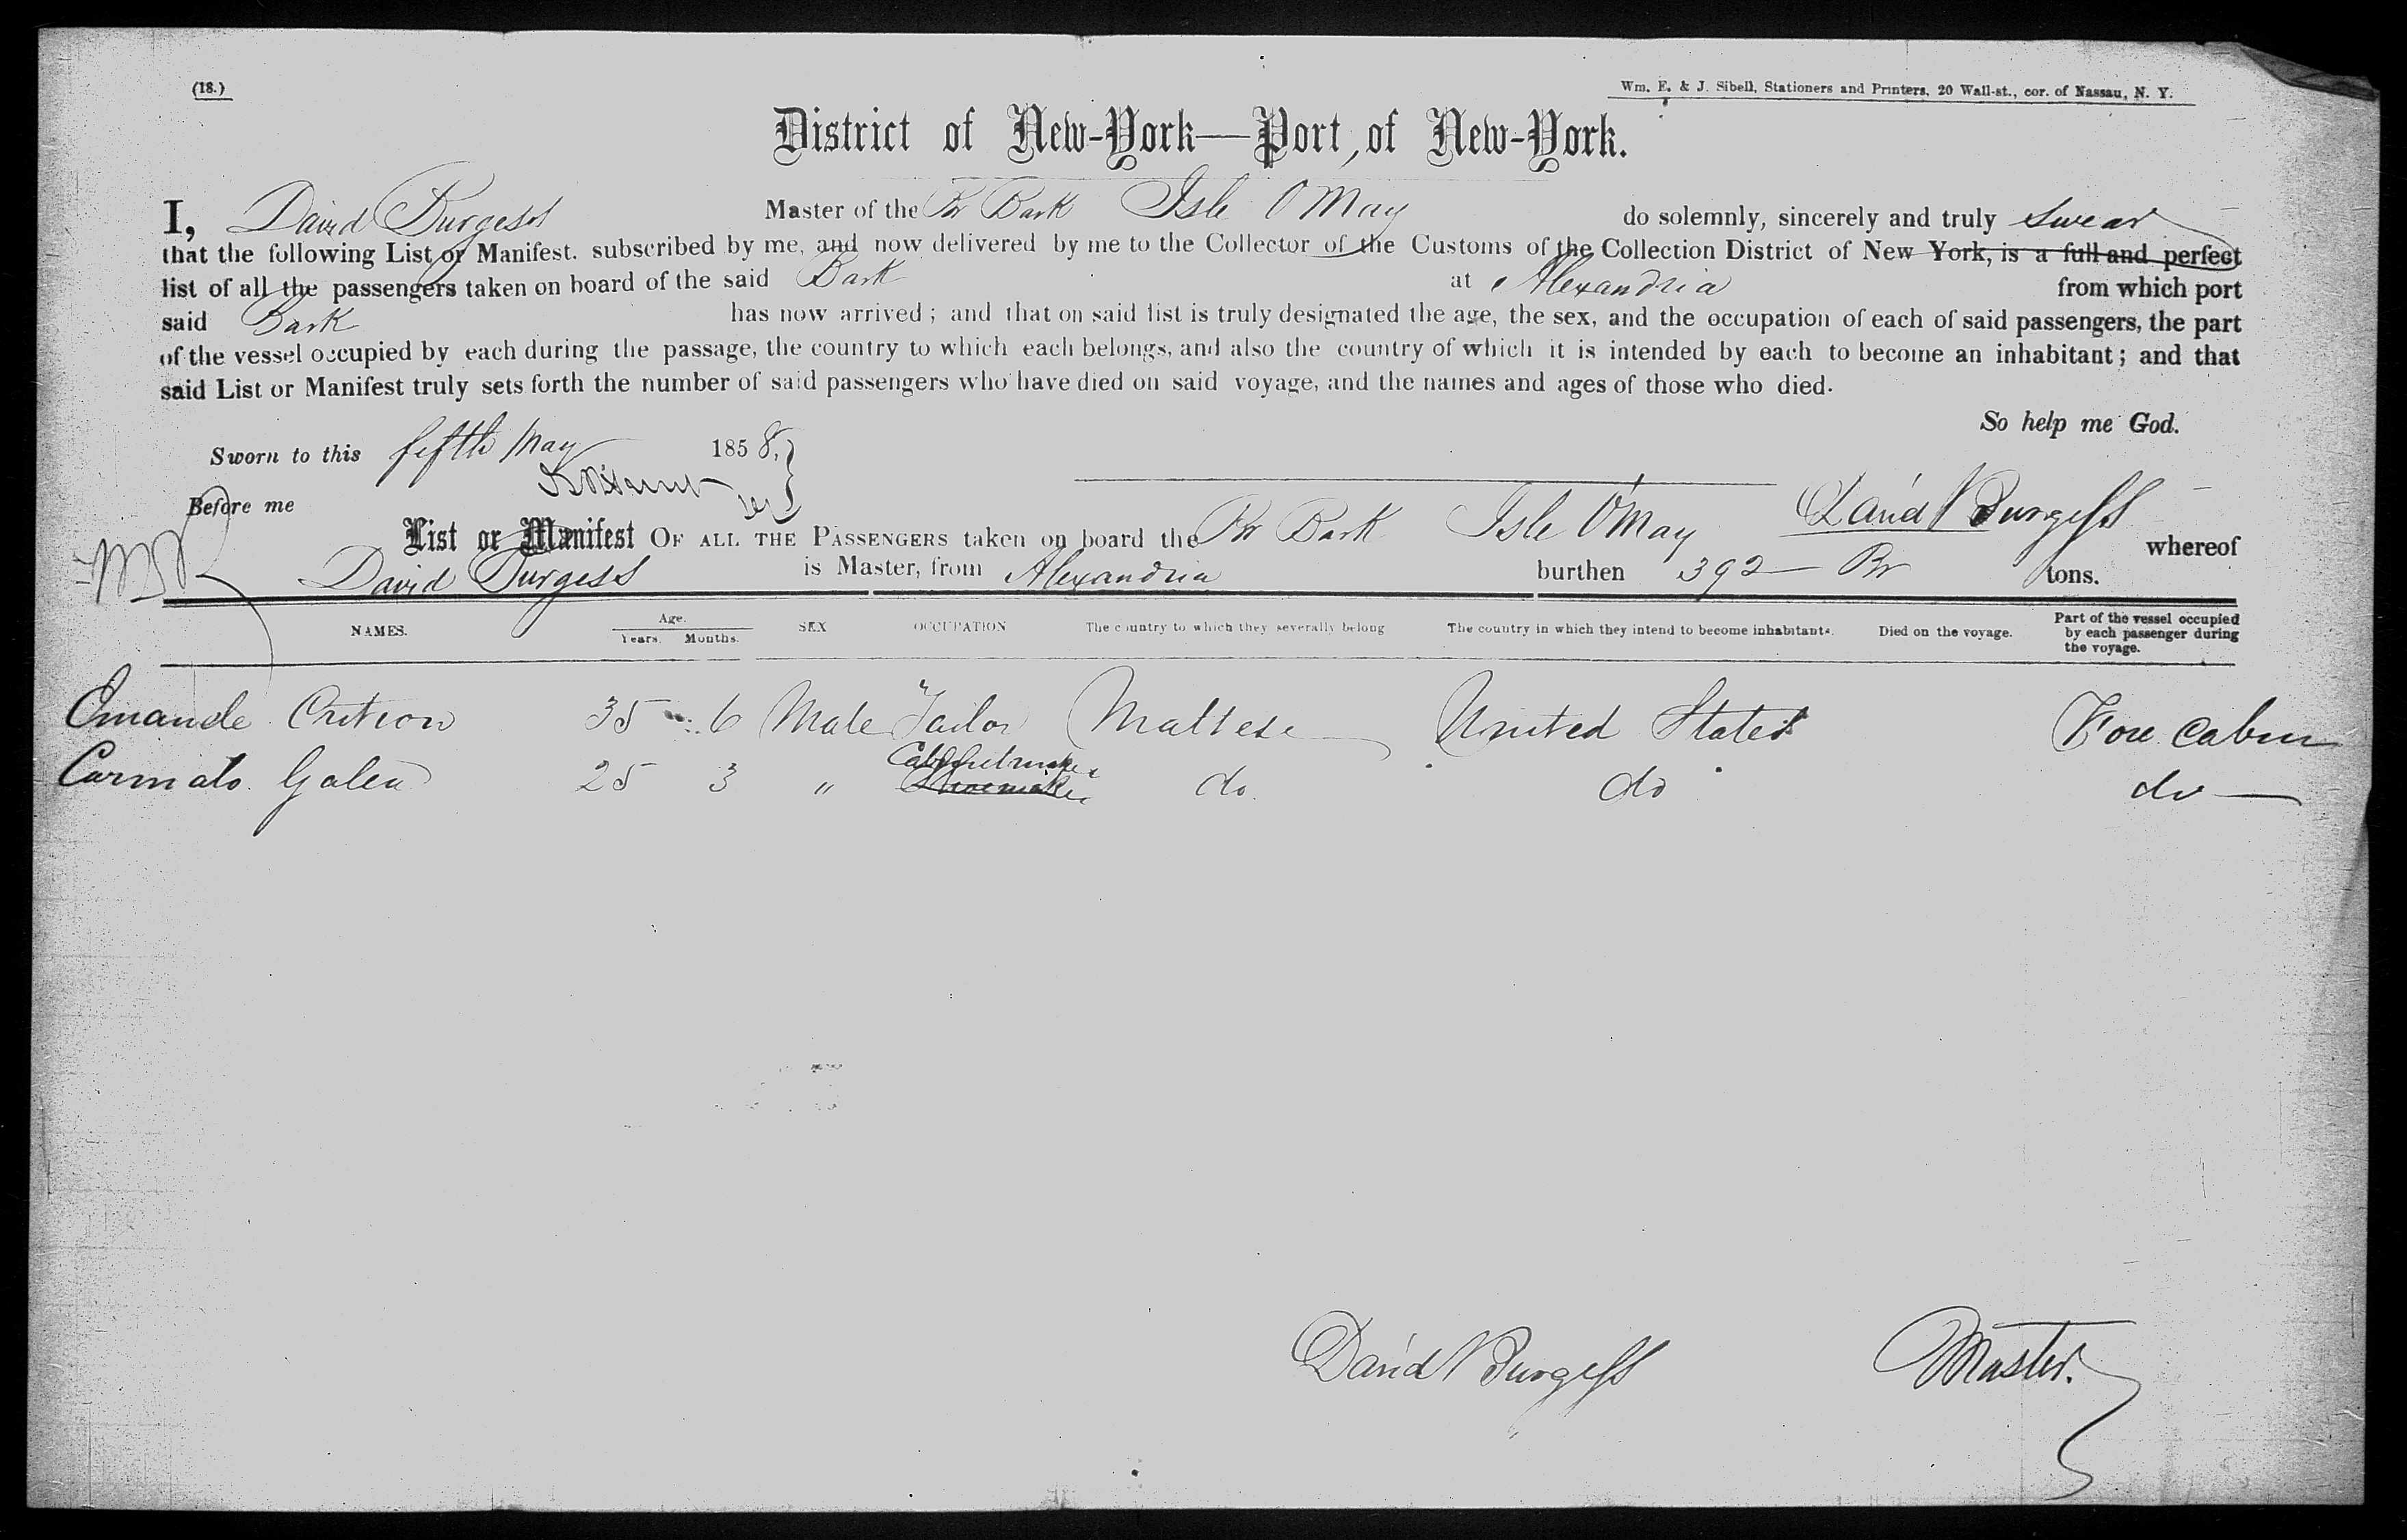 (18.)
Wm. E. & J. Sibell, Stationers and Printers, 20 Wall-st., cor. of Nassau, N. Y.
District of New-York—Port, of New-York.
I, David Burgess Master of the Br Bark Isle O May do solemnly, sincerely and truly Swear
that the following List or Manifest. subscribed by me, and now delivered by me to the Collector of the Customs of the Collection District of New York, is a full and perfect
list of all the passengers taken on board of the said Bark at Alexandria from which port
said Bark has now arrived; and that on said list is truly designated the age, the sex, and the occupation of each of said passengers, the part
of the vessel occupied by each during the passage, the country to which each belongs, and also the country of which it is intended by each to become an inhabitant; and that
said List or Manifest truly sets forth the number of said passengers who have died on said voyage, and the names and ages of those who died.
So help me God.
Sworn to this fifth May 1858,
Before me
David Burgess
List or Manifest OF ALL THE PASSENGERS taken on board the Br Bark Isle O'May whereof
David Burgess is Master, from Alexandria burthen 392 — Br tons.
NAMES. Age. Years. Months. SEX OCCUPATION The country to which they severally belong The country in which they intend to become inhabitants. Died on the voyage. Part of the vessel occupied by each passenger during the voyage.
35 6 Male Tailor Maltese United States Fore Cabin
Cabinetmaker
Carmalo Galea 25 3 " Shoemaker do. do do
David Burgess Master.